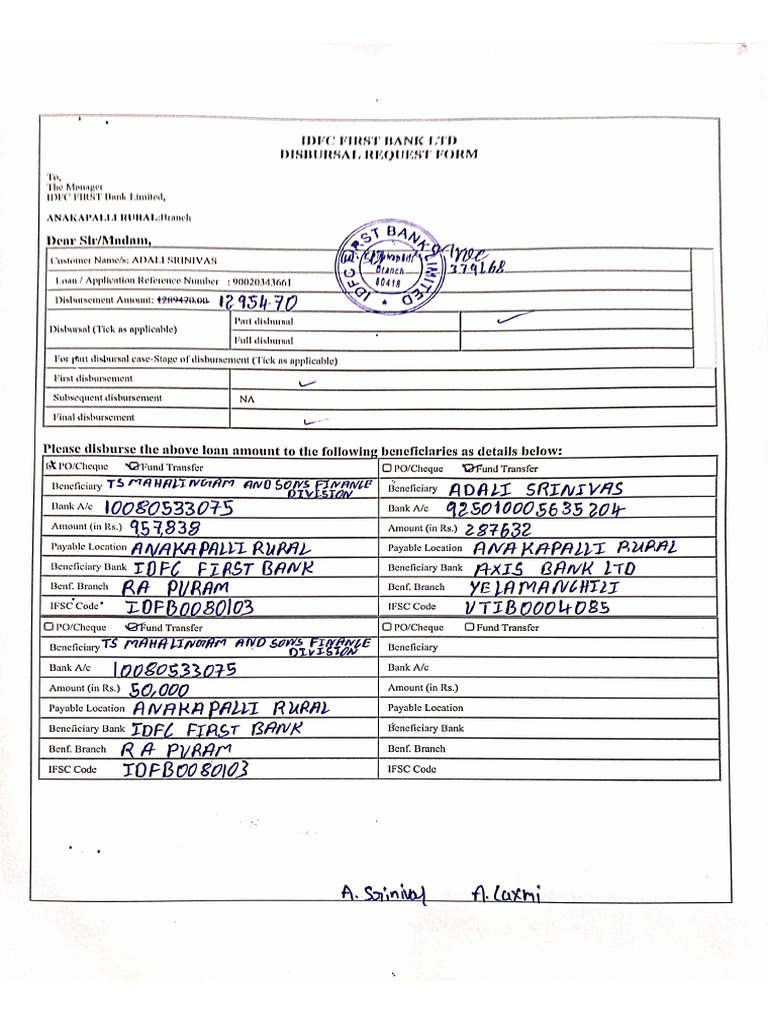 IDFC FIRST BANK LTD
DISBURSAL REQUEST FORM
To,
The Menager
IDFC FIRST Bank Limited,
ANAKAPALLI RURAL:Branch
Dear Sir/Madam,
IDFC FIRST BANK LIMITED
Branch
80418
379168
Customer Name/s: ADALI SRINIVAS
Loan / Application Reference Number : 90020343661
Disbursement Amount: 1289470.00 1295470
Disbursal (Tick as applicable)
Part disbursal
Full disbursal
For part disbursal case-Stage of disbursement (Tick as applicable)
First disbursement
Subsequent disbursement NA
Final disbursement
Please disburse the above loan amount to the following beneficiaries as details below:
PO/Cheque Fund Transfer
Beneficiary TS MAHALINGAM AND SONS FINANCE DIVISION
Bank A/c 10080533075
Amount (in Rs.) 957,838
Payable Location ANAKAPALLI RURAL
Beneficiary Bank IDFC FIRST BANK
Benf. Branch RA PURAM
IFSC Code IDFB0080103
PO/Cheque Fund Transfer
Beneficiary ADALI SRINIVAS
Bank A/c 925010005635204
Amount (in Rs.) 287632
Payable Location ANAKAPALLI RURAL
Beneficiary Bank AXIS BANK LTD
Benf. Branch YELAMANCHILI
IFSC Code UTIB0004085
PO/Cheque Fund Transfer
Beneficiary TS MAHALINGAM AND SONS FINANCE DIVISION
Bank A/c 10080533075
Amount (in Rs.) 50,000
Payable Location ANAKAPALLI RURAL
Beneficiary Bank IDFC FIRST BANK
Benf. Branch RA PURAM
IFSC Code IDFB0080103
PO/Cheque Fund Transfer
Beneficiary
Bank A/c
Amount (in Rs.)
Payable Location
Beneficiary Bank
Benf. Branch
IFSC Code
A. Srinivas A. Laxmi